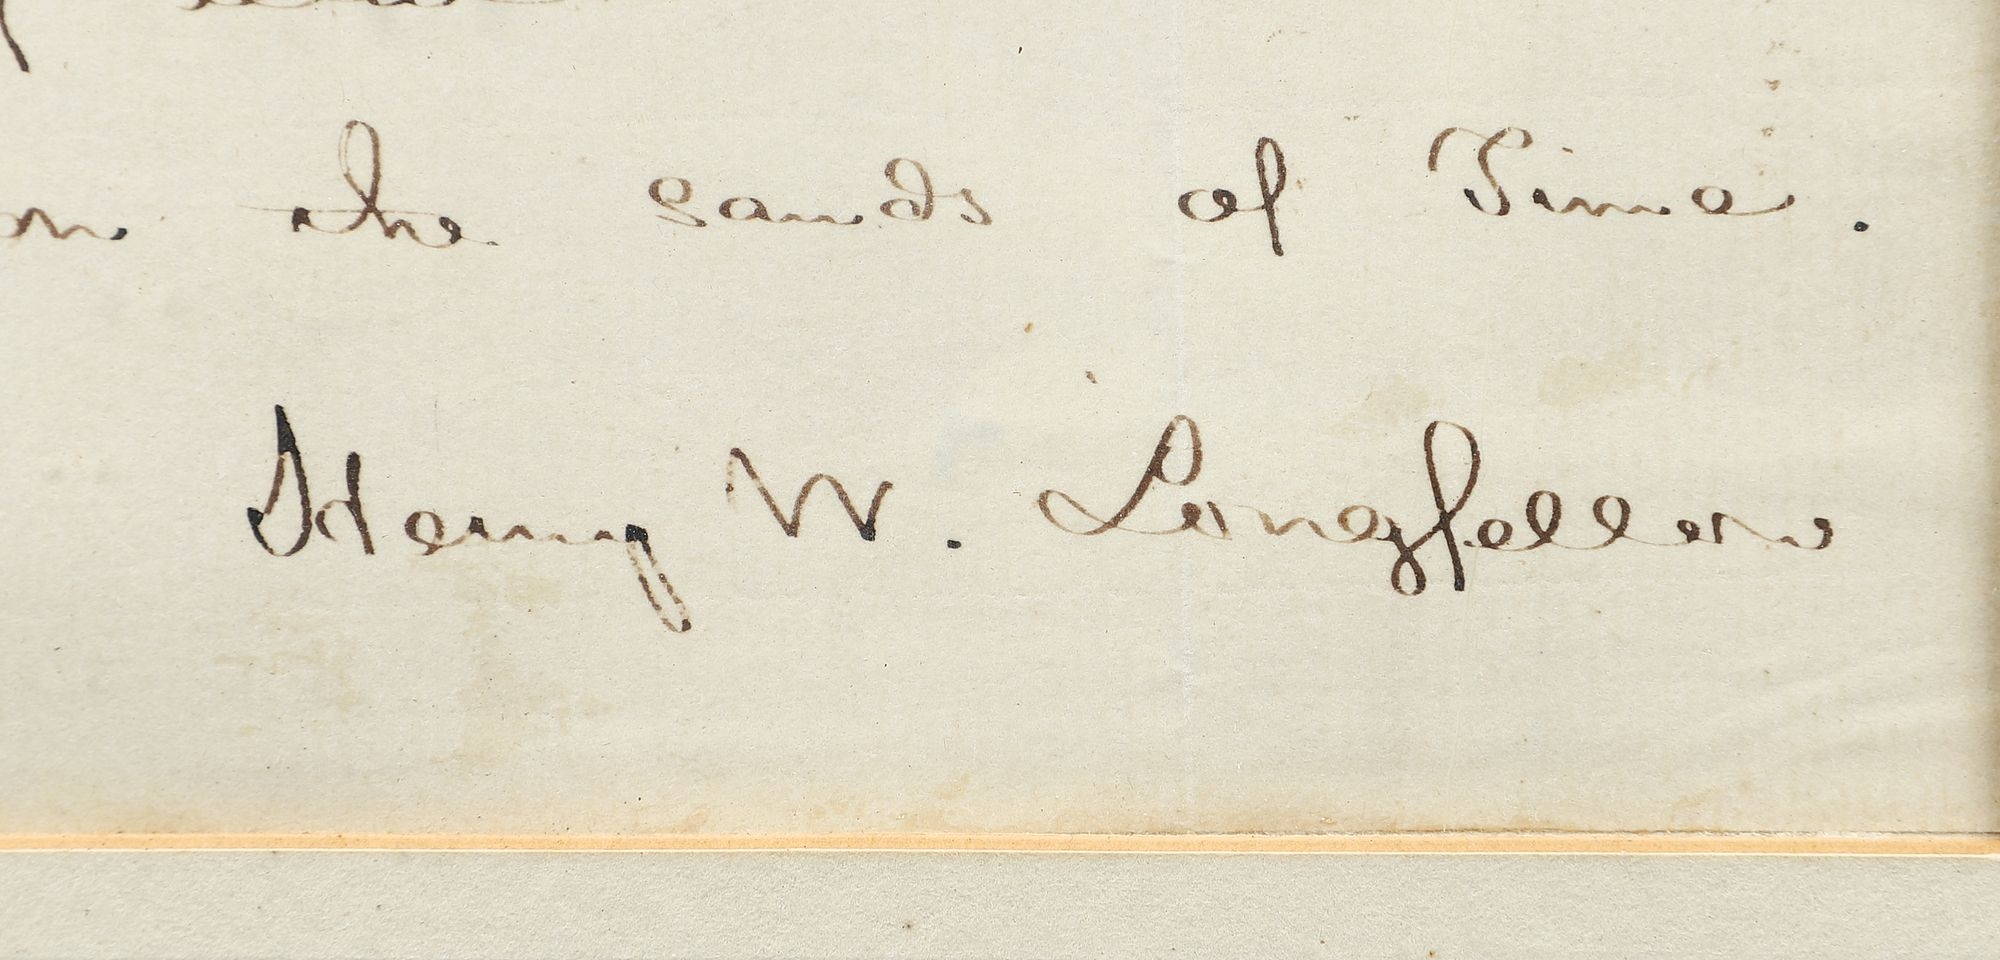 on the sands of Time.
Henry W. Longfellow